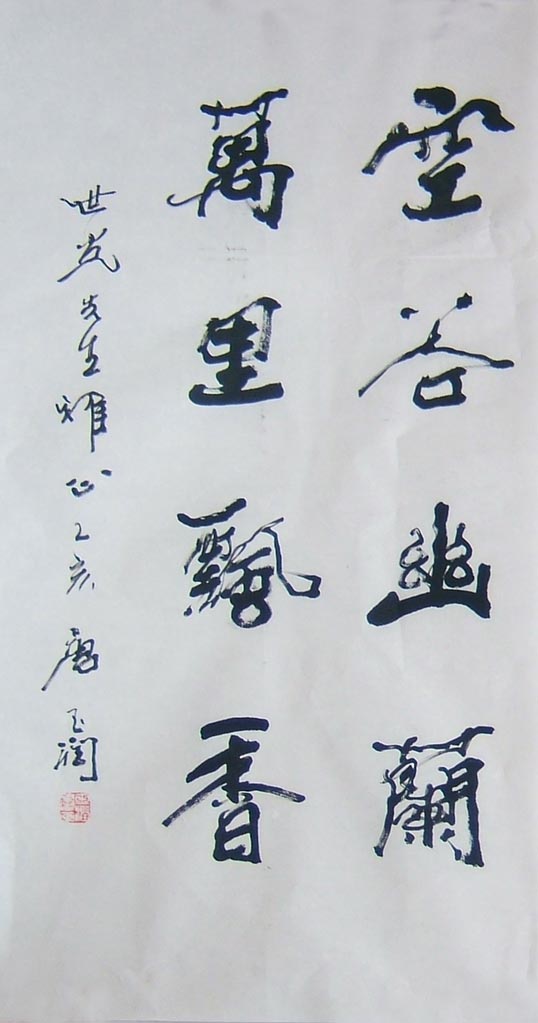 空谷幽蘭
萬里飄香
世光先生雅正乙亥唐玉潤